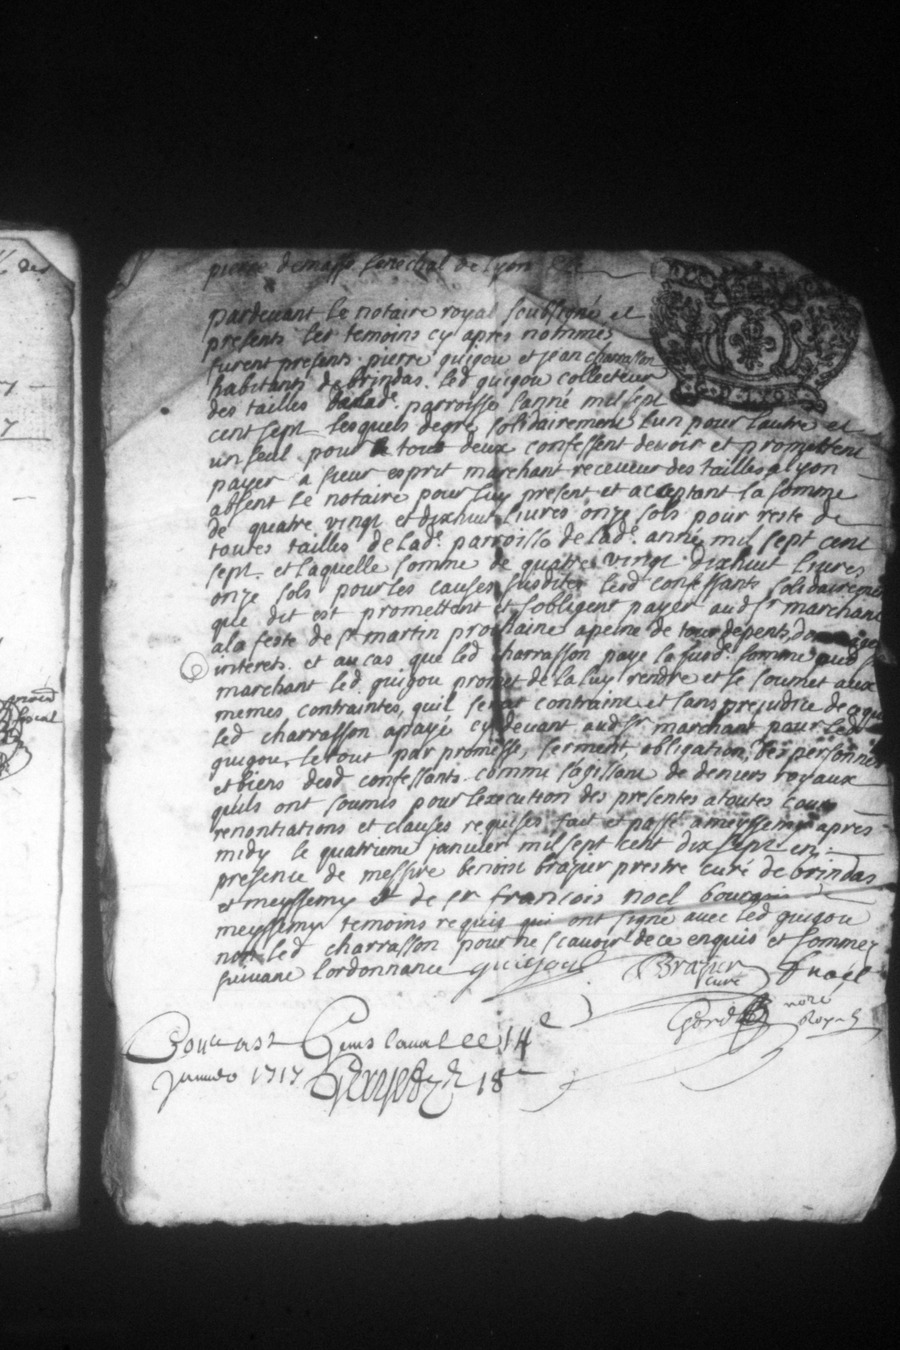 pierre demasso senechal de Lyon
G. D. LYON
pardevant le notaire royal soubsigné et
presents les temoins cy apres nommes
furent presents pierre guigou et jean charrasson
habitants de brindas. led guigou collecteur
des tailles parroisse lanné mil sept
cent sept lesquels degré solidairement lun pour lautre et
un seul pour le tout deux confessent devoir et promettent
payer a sieur esprit marchant receveur des tailles a lyon
absent le notaire pour luy present et acceptant la somme
de quatre vingt et dixhuit Livres onze sols pour reste de
toutes tailles de lade parroisse de lade anné mil sept cent
sept. et laquelle somme de quatre vingt dixhuit Livres
onze sols pour les causes susdites lesd confessants solidairement
que dit est promettent et sobligent payer aud sr marchant
a la feste de st martin prochaine apeine de tous depents
interets. et au cas que led charrasson paye la susde somme aud sr
marchant led. guigou promet de la luy rendre et se soumet aux
memes contraintes, quil seroit contraint et sans prejudice de
led charrasson a payé cy devant aud sr marchant pour led
guigou, le tout par promesse, serment obligation, des personnes
et biens desd confessants comme sagissant de deniers royaux
quils ont soumis pour lexecution des presentes a toutes cours
renontiations et clauses requises fait et passé a meyssemy apres
midy le quatrieme janvier mil sept cent dix sept en
presence de messire benoist brazier prestre curé de brindas
et meyssemy et de sr francois noel bourgois
meyssemy temoins requis qui ont signe avec led guigou
non led charrasson pour ne scavoir de ce enquis et sommez
suivant lordonnance guigou Brazier curé F noel
nore Royal
14e
1717 18